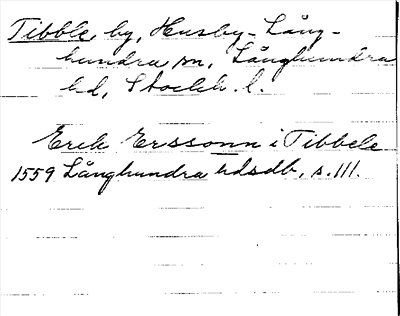 Tibble, by, Husby-Lång-
hundra sn, Långhundra
hd, Stockh. l.
Erik Erssonn i Tibbele
1559 Långhundra hdsdb, s. 111.